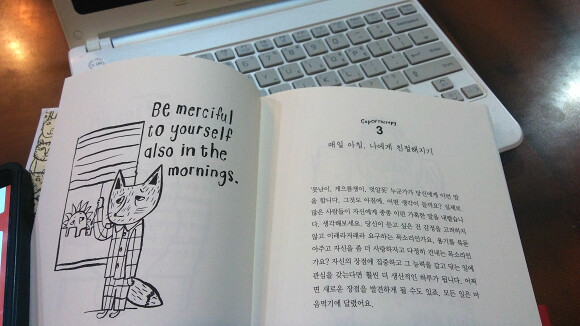 Be merciful
to yourself
also in the
mornings.
3
매일 아침, 나에게 친절해지기
'못난이, 게으름쟁이, 멋알못' 누군가가 당신에게 이런 말
을 합니다. 그것도 아침에. 어떤 생각이 들까요? 실제로
많은 사람들이 자신에게 종종 이런 가혹한 말을 내뱉습니
다. 생각해보세요. 당신이 듣고 싶은 건 감정을 고려하지
않고 이래라저래라 요구하는 목소리인가요, 용기를 북돋
아주고 자신을 좀 더 사랑하자고 다정히 건네는 목소리인
가요? 자신의 장점에 집중하고 그 능력을 갈고 닦는 일에
관심을 갖는다면 훨씬 더 생산적인 하루가 됩니다. 어쩌
면 새로운 장점을 발견하게 될 수도 있죠. 모든 일은 마
음먹기에 달렸어요.